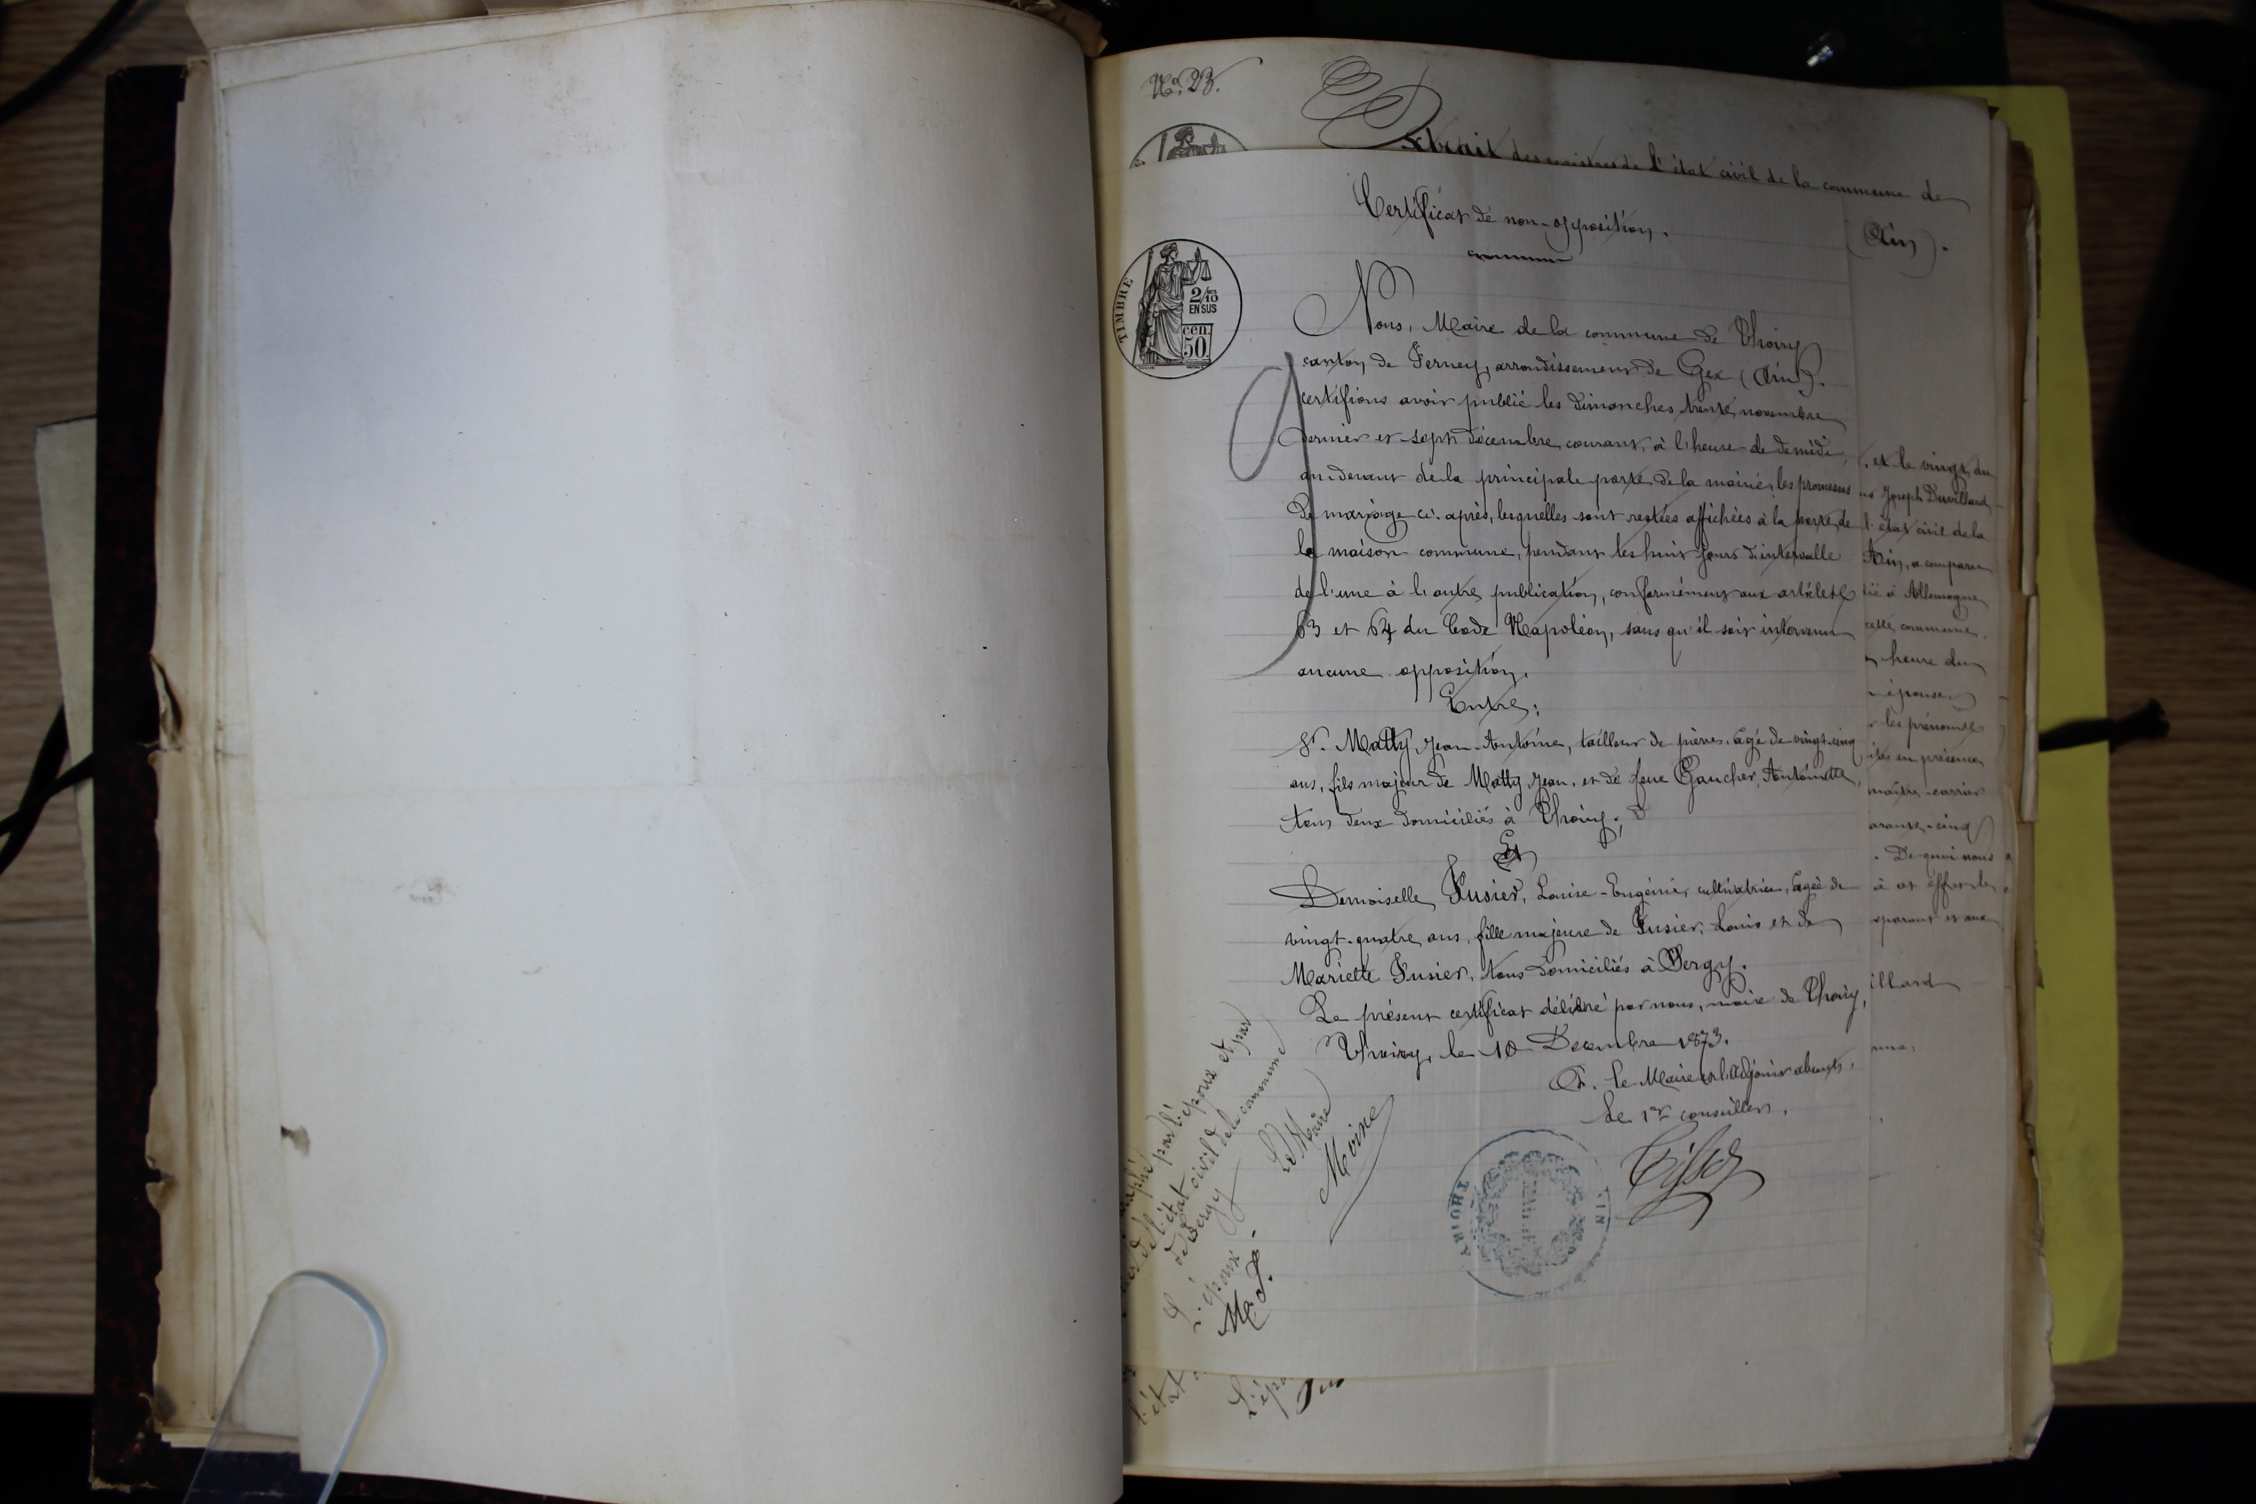 No. 23.
Extrait des registres de l'état civil de la commune de
(Ain).
Certificat de non-opposition.
TIMBRE
2/10
EN SUS
cen.
50
Nous, Maire de la commune de Thoiry
canton de Ferney, arrondissement de Gex (Ain).
certifions avoir publié les dimanches trente novembre
dernier et sept décembre courant, à l'heure de de midi,
au devant de la principale porte de la mairie, les promesses
de mariage ci-après, lesquelles sont restées affichées à la porte de
la maison commune, pendant les huit jours d'intervalle
de l'une à l'autre publication, conformément aux articles
63 et 64 du Code Napoléon, sans qu'il soit intervenu
aucune opposition.
Entre:
Sr. Matty, Jean-Antoine, tailleur de pierres, âgé de vingt-cinq
ans, fils majeur de Matty, Jean, et de feue Gaucher, Antoinette,
tous deux domiciliés à Thoiry;
Et
Demoiselle Fusier, Louise-Eugénie, cultivatrice, âgée de
vingt-quatre ans, fille majeure de Fusier, Louis et de
Mariette Fusier, tous domiciliés à Sergy.
Le présent certificat délivré par nous, maire de Thoiry,
Thoiry, le 10 Décembre 1873.
P. le Maire et l'Adjoint absents,
Le 1er conseiller,
THOIRY
AIN
MAIRIE
, et le vingt du
Joseph Duvillard
l'état civil de la
Ain, a comparu
à Allemogne
cette commune.
heure du
épouse
les prénoms
en présence
maître-carrier
arante-cinq
. De quoi nous
à cet effet les
mparant et aux
illard
par l'époux et par
de l'état civil de la commune
de Sergy
L'époux
M. J.
Le Maire
Moine
l'état
L'épo